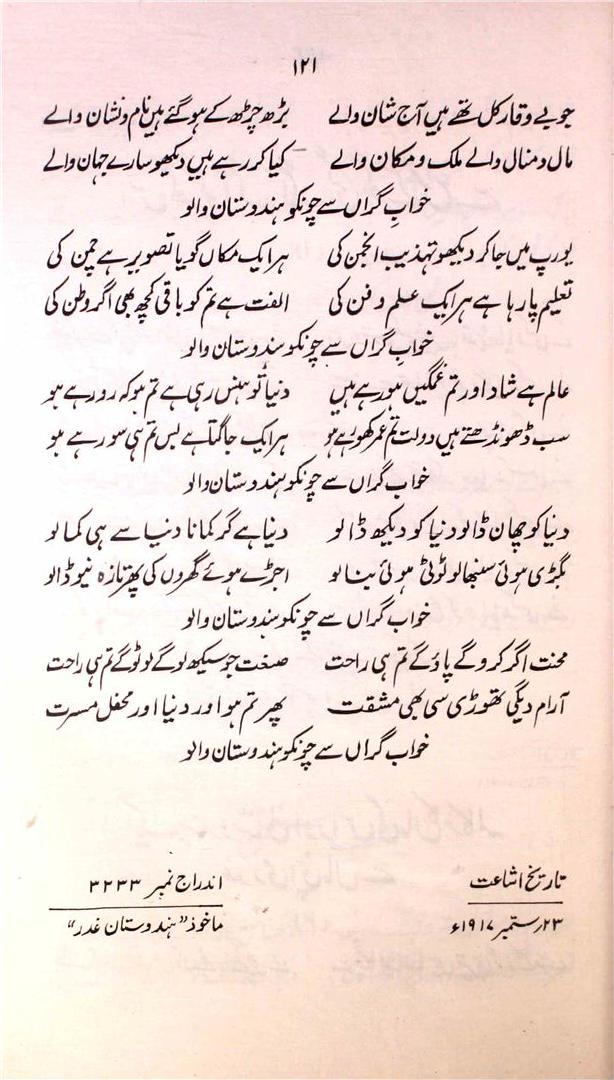 ۱۲۱
جو بے وقار کل تھے ہیں آج شان والے بڑھ چڑھ کے ہو گئے ہیں نام و نشان والے
مال و منال والے ملک و مکان والے کیا کر رہے ہیں دیکھو سارے جہان والے
خوابِ گراں سے چونکو ہندوستان والو
یورپ میں جا کر دیکھو تہذیب انجمن کی ہر ایک مکاں گویا تصویر ہے چمن کی
تعلیم پا رہا ہے ہر ایک علم و فن کی الفت ہے تم کو باقی کچھ بھی اگر وطن کی
خوابِ گراں سے چونکو ہندوستان والو
عالم ہے شاد اور تم غمگیں ہو رہے ہیں دنیا تو ہنس رہی ہے تم ہو کہ رو رہے ہو
سب ڈھونڈھتے ہیں دولت تم عمر کھو رہے ہو ہر ایک جاگتا ہے بس تم ہی سو رہے ہو
خواب گراں سے چونکو ہندوستان والو
دنیا کو چھان ڈالو دنیا کو دیکھ ڈالو دنیا ہے گر کمانا دنیا سے ہی کما لو
بگڑی ہوئی سنبھالو ٹوٹی ہوئی بنا لو اجڑے ہوئے گھروں کی پھر تازہ نیو ڈالو
خواب گراں سے چونکو ہندوستان والو
محنت اگر کرو گے پاؤ گے تم ہی راحت صنعت جو سیکھ لو گے لوٹو گے تم ہی راحت
آرام دیگی تھوڑی سی بھی مشقت پھر تم ہو اور دنیا اور محفل مسرت
خواب گراں سے چونکو ہندوستان والو
تاریخ اشاعت اندراج نمبر ۳۲۳۳
۲۳ ستمبر ۱۹۱۷ء ماخوذ "ہندوستان غدر"